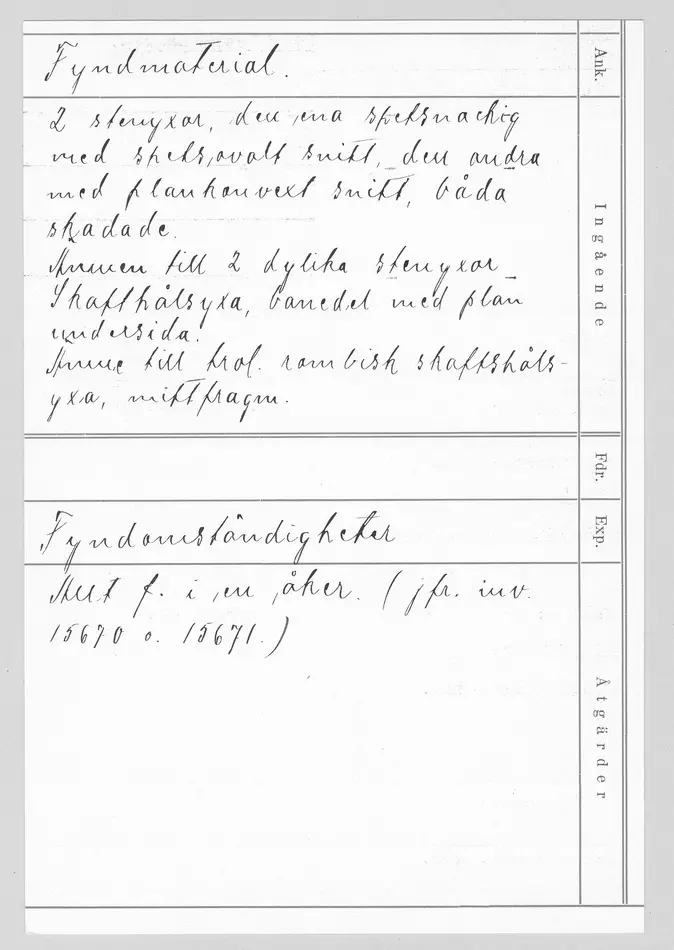 Fyndmaterial.
Ank.
2 stenyxor, den ena spetsnackig
med spetsovalt snitt, den andra
med plankonvext snitt, båda
skadade.
Ämnen till 2 dylika stenyxor
Skafthålsyxa, banedel med plan
undersida.
Ämne till trol. rombisk skaftshåls-
yxa, mittfragm.
Ingående
Fdr.
Fyndomständigheter
Exp.
Allt f. i en åker. (jfr. inv.
15670 o. 15671.)
Åtgärder